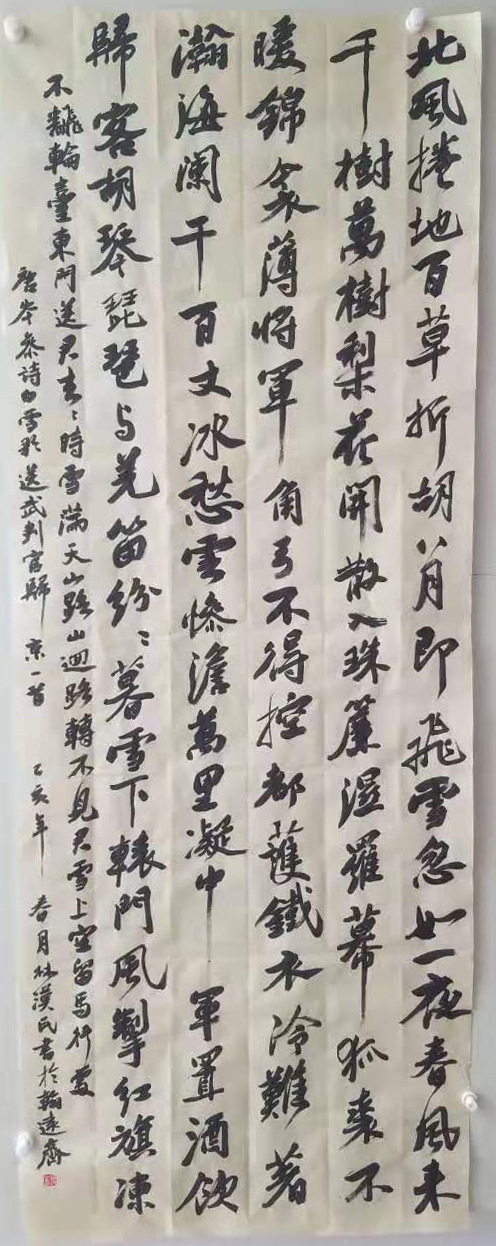 北風捲地百草折胡八月即飛雪忽如一夜春風来
千樹萬樹梨花開散入珠簾濕羅幕狐裘不
暖錦衾薄將軍角弓不得控都護鐵衣冷難著
瀚海闌干百丈冰愁雲慘澹萬里凝中軍置酒飲
歸客胡琴琵琶与羌笛紛〻暮雪下轅門風掣红旗凍
不飜輪臺東門送君去〻時雪滿天山路山迴路轉不見君雪上空留馬行處
唐岑參詩白雪歌送武判官歸京一首 乙亥年春月林漢民書於翰逵齋